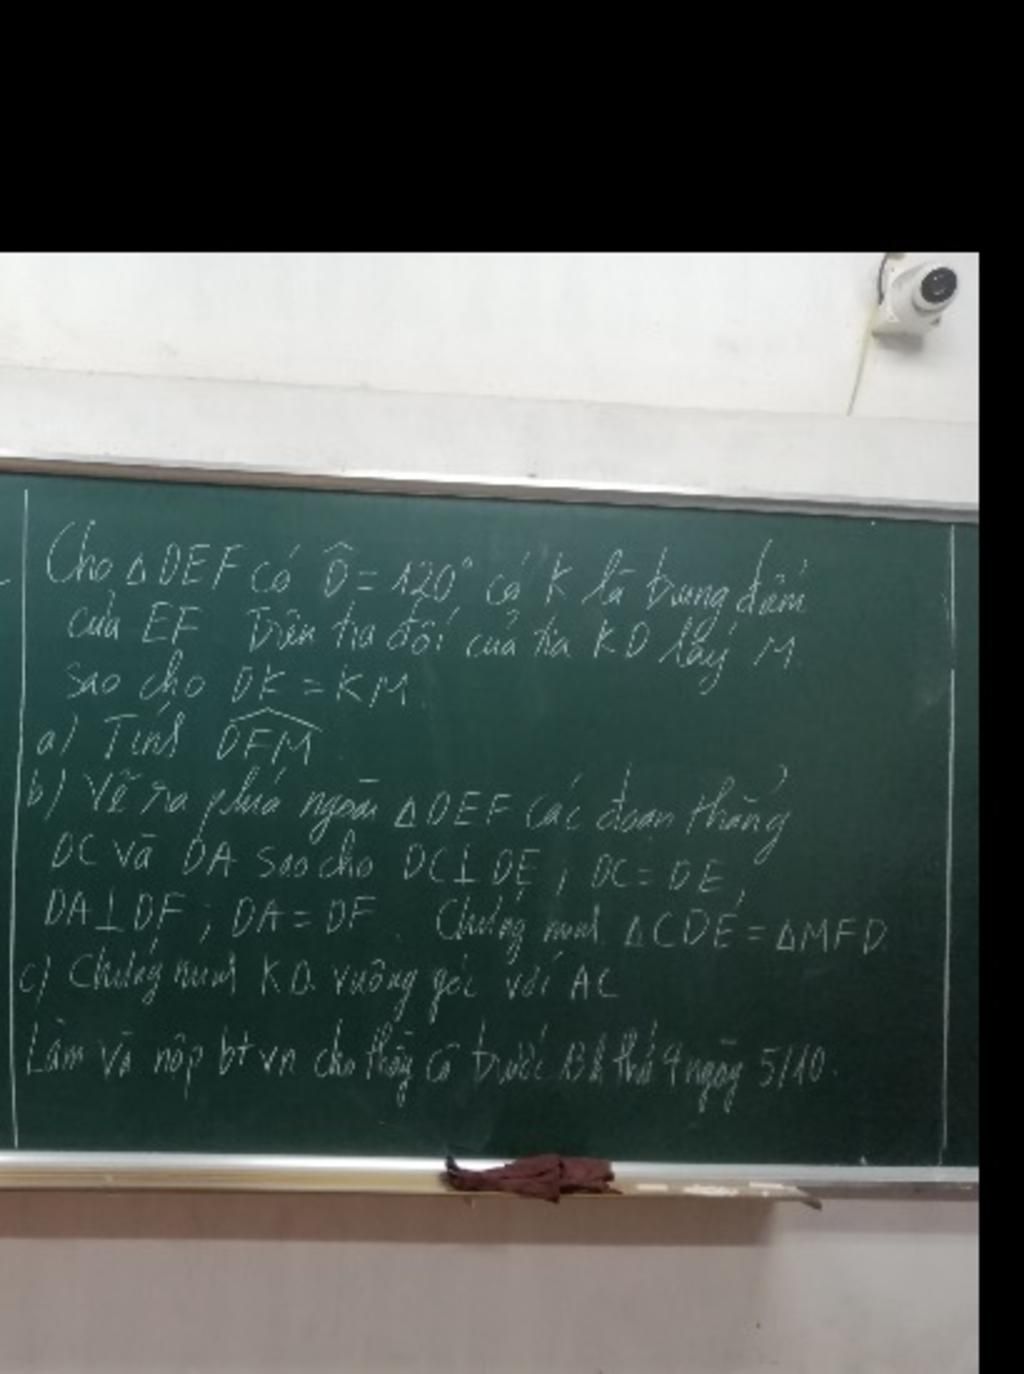 Cho △DEF có D̂ = 120° có K là trung điểm
của EF Trên tia đối của tia KD lấy M
sao cho DK = KM.
a) Tính DFM
b) Vẽ ra phía ngoài △DEF các đoạn thẳng
DC và DA sao cho DC⊥DE; DC=DE,
DA⊥DF; DA=DF. Chứng minh △CDE=△MFD
c) Chứng minh KD vuông góc với AC
Làm và nộp btvn cho thầy cô trước 13h thứ 4 ngày 5/10.